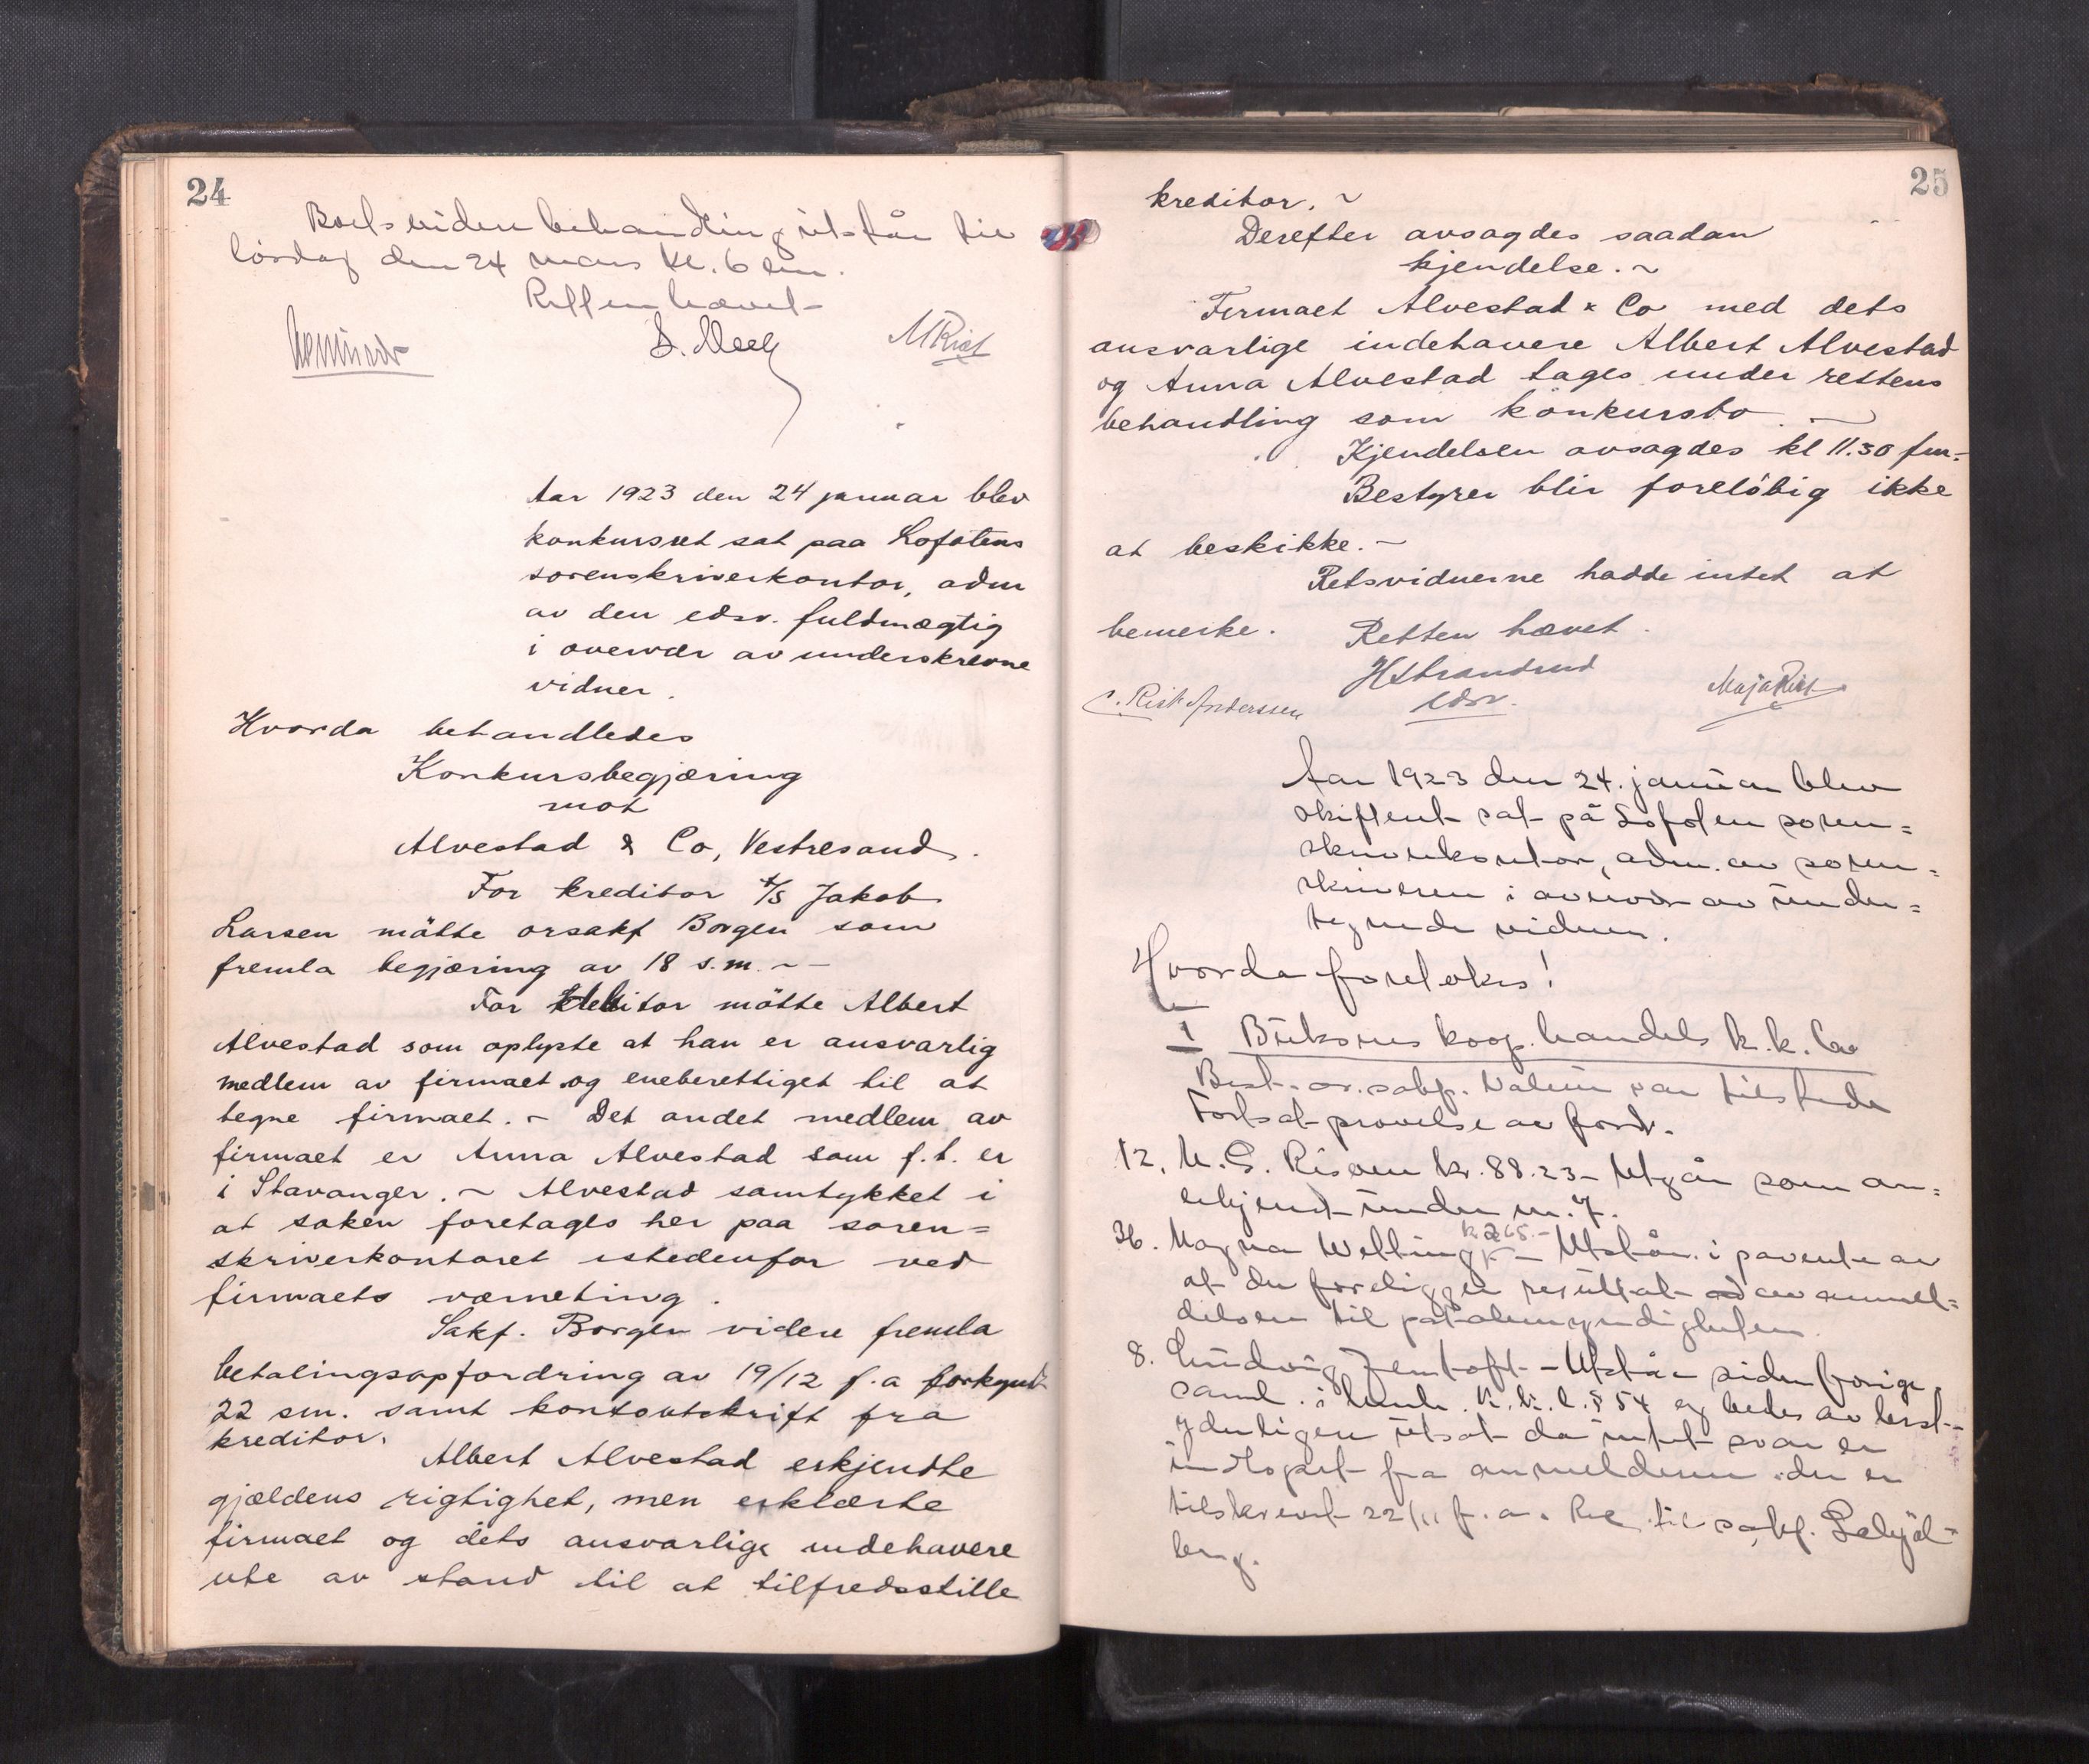 24
Boets videre behandling utstår til
lørdag den 24 mars kl. 6 em.
Retten hævet
MRist
Aar 1923 den 24 januar blev
konkursret sat paa Lofotens
sorenskriverkontor, adm
av den edsv. fuldmægtig
i overvær av underskrevne
vidner.
Hvorda behandledes
Konkursbegjæring
mot
Alvestad & Co, Vestresand.
For kreditor A/S Jakob
Larsen møtte orsakf Borgen som
fremla begjæring av 18 s.m. ~
For debitor møtte Albert
Alvestad som oplyste at han er ansvarlig
medlem av firmaet og eneberettiget til at
tegne firmaet. ~ Det andet medlem av
firmaet er Anna Alvestad som f.t. er
i Stavanger. ~ Alvestad samtykket i
at saken foretages her paa soren=
skriverkontoret istedenfor ved
firmaets værneting.
Sakf. Borgen videre fremla
betalingsopfordring av 19/12 f.a forkyndt
22 sm. samt kontoutskrift fra
kreditor.
Albert Alvestad erkjendte
gjældens rigtighet, men erklærte
firmaet og dets ansvarlige indehavere
ute av stand til at tilfredsstille
25
kreditor. ~
Derefter avsagdes saadan
kjendelse. ~
Firmaet Alvestad & Co med dets
ansvarlige indehavere Albert Alvestad
og Anna Alvestad tages under rettens
behandling som konkursbo. ~
Kjendelsen avsagdes kl 11.30 fm.
Bestyrer blir foreløbig ikke
at beskikke. ~
Retsvidnerne hadde intet at
bemerke. Retten hævet.
HStrandrud
edsv.
C. Rist Anderssen
Maja Rist
Aar 1923 den 24. januar blev
skifteret sat på Lofoten soren=
skriverkontor, adm. av soren=
skriveren i overvær av under=
tegnede vidner.
Hvorda foretokes!
I Buksnes koop. handels k.k. bo
Best. or. sakf. Valeur var tilstede
Fortsat prøvelse av fordr.
12. M. G. Risøen kr. 88.23 – Utgår som an=
erkjendt under nr. 7.
36. Magna Welting kr 265.– – Utstår i påvente av
at der foreligger resultat av anmel=
delsen til påtalemyndigheten.
8. Ludvig Jentoft – Utstår siden forrige
saml. i henh. k.k.l. § 54 og bedes av best.
yderligere utsat da intet svar er
indløpet fra anmelderen der er
tilskrevet 22/11 f.a. til sakf.
berg.